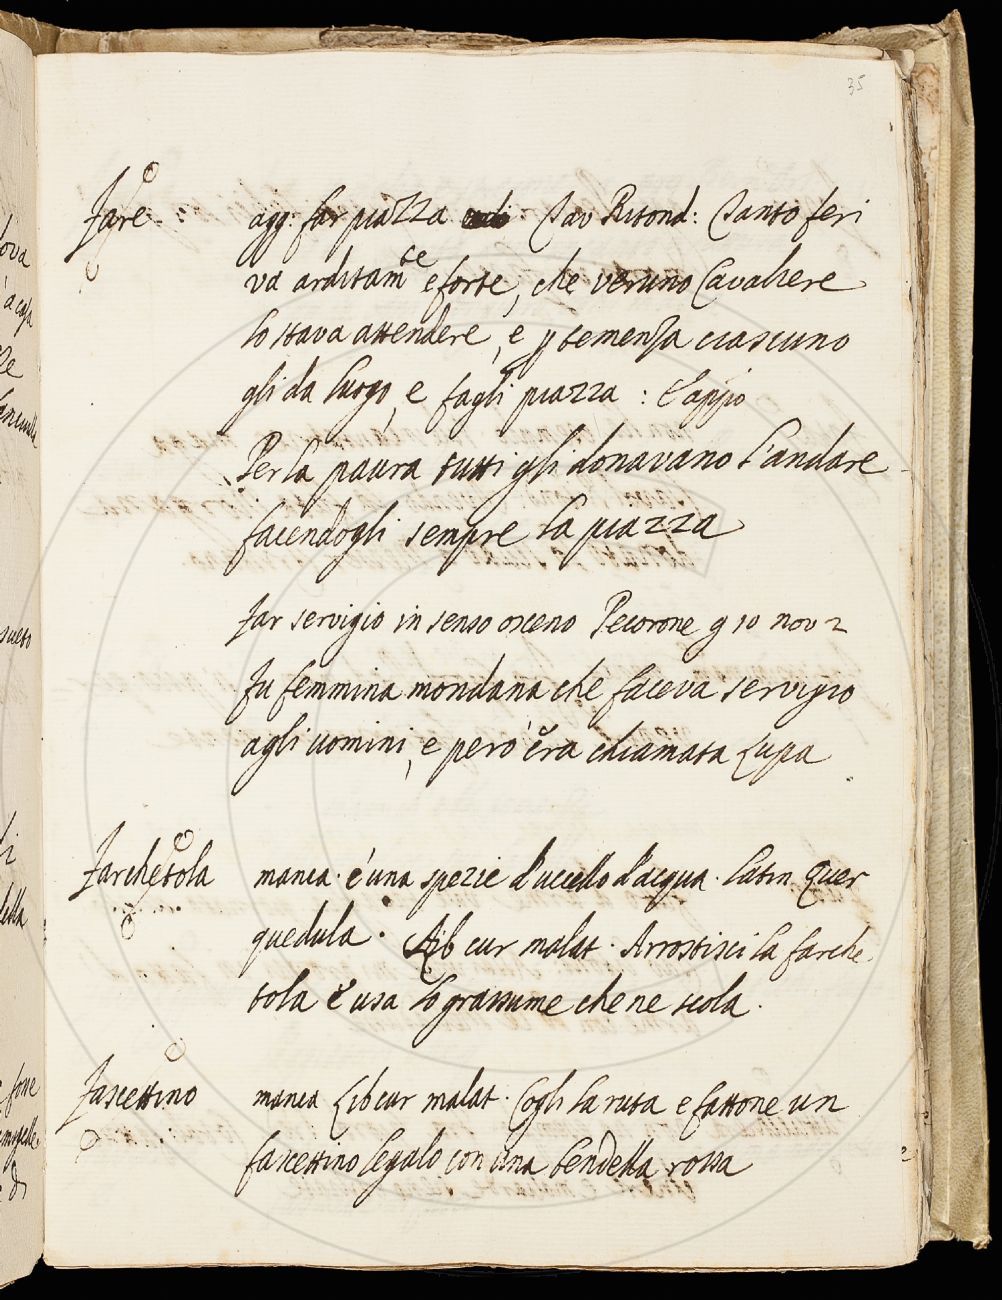 35
Fare agg. far piazza Tav Ritond: Tanto feri
va arditam.te e forte, che veruno Cavaliere
lo stava attendere, e p temenza ciascuno
gli da luogo, e fagli piazza : E appio
Per la paura tutti gli donavano l'andare
facendogli sempre la piazza
Far servigio in senso osceno Pecorone g 10 nov 2
Fu femmina mondana che faceva servigio
agli uomini, e però era chiamata Lupa
Farchetola manca. è una spezie d'uccello d'acqua. Latin Quer
quedula. Lib cur malat. Arrostisci la farche
tola e usa lo grassume che ne scola.
Fascettino manca Lib cur malat. Cogli la ruta e fattone un
fascettino legalo con una bendella rossa